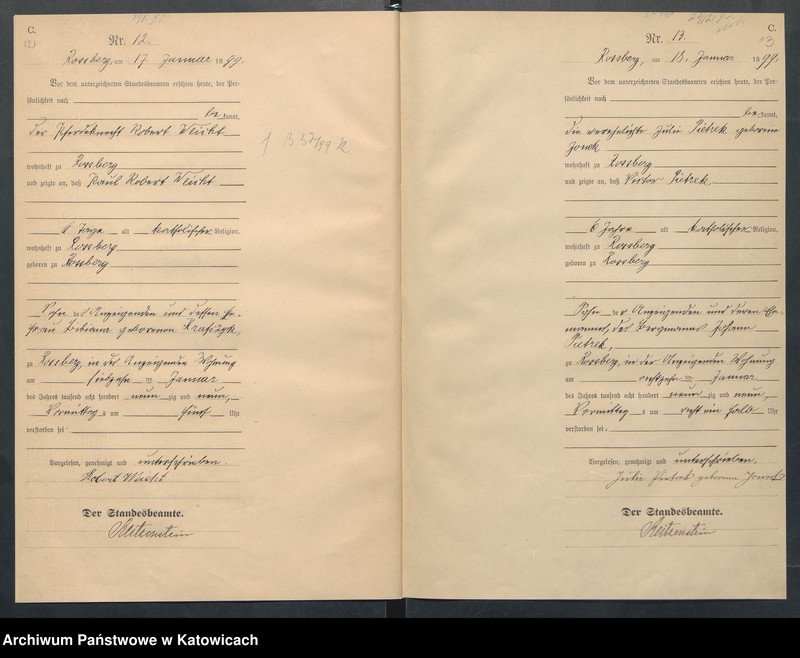 C.
Nr. 12.
Rossberg, am 17. Januar 1899.
Vor dem unterzeichneten Standesbeamten erschien heute, der Per-
sönlichkeit nach
be kannt,
der Pferdeknecht Robert
wohnhaft zu Rossberg
und zeigte an, daß Paul Robert
6 Tage alt katholischer Religion,
wohnhaft zu Rossberg
geboren zu Rossberg
Sohn des Anzeigenden und dessen Ehe-
frau Bibiana geborenen
zu Rossberg, in des Anzeigenden Wohnung
am siebzehn ten Januar
des Jahres tausend acht hundert neun zig und neun,
Vormittag s um fünf Uhr
verstorben sei.
Vorgelesen, genehmigt und unterschrieben.
Robert
Der Standesbeamte.
Reitzenstein
C.
13
Nr. 13.
Rossberg, am 18. Januar 1899.
Vor dem unterzeichneten Standesbeamten erschien heute, der Per-
sönlichkeit nach
be kannt,
die verehelichte Julie Pietrek geborene
wohnhaft zu Rossberg
und zeigte an, daß Victor Pietrek,
6 Jahre alt katholischer Religion,
wohnhaft zu Rossberg
geboren zu Rossberg
Sohn der Anzeigenden und deren Ehe-
mannes, des Bergmanns Johann
Pietrek,
zu Rossberg, in der Anzeigenden Wohnung
am achtzehn ten Januar
des Jahres tausend acht hundert neun zig und neun,
Vormittag s um acht ein halb Uhr
verstorben sei.
Vorgelesen, genehmigt und unterschrieben.
Julie Pietrek geborene
Der Standesbeamte.
Reitzenstein
Archiwum Państwowe w Katowicach